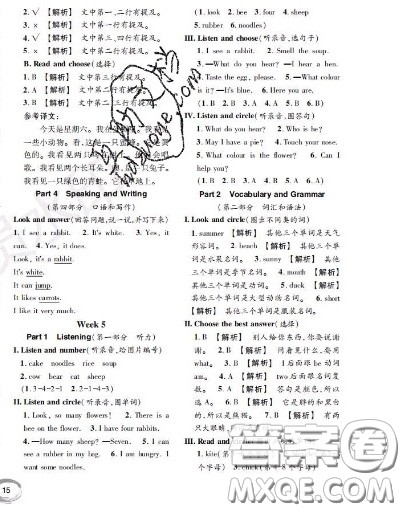 2. √ 【解析】 文中第一、二行有提及。
3. × 【解析】 文中第二行有提及。
4. × 【解析】 文中第三、四行有提及。
5. √ 【解析】 文中第四行有提及。
B. Read and choose(选择)
1. B 【解析】 文中第一行有提及。
2. A 【解析】 文中第
3. B 【解析】 文中第二、三行有提及。
参考译文:
今天是星期六。我在
一些小动物。看,这是一只
色的。我看见两只
我看见一只绿色的青蛙。它在 地上。
Part 4 Speaking and Writing
(第四部分 口语和写作)
Look and answer(看图回答问题,说一说,并写下来)
1. I see a rabbit. 2. It's white. 3. Yes, it
does. 4. Yes, it can.
Look, it's a rabbit.
It's white.
It can jump.
It likes carrots.
I like it very much.
Week 5
Part 1 Listening(第一部分 听力)
I. Listen and number(听录音,给图片编号)
1. cake noodles rice soup
2. cow bear cat sheep
(1. 3-4-2-1 2. 2-1-4-3)
II. Listen and circle(听录音,圈单词)
1. Look, so many flowers! 2. There is a
bee on the flower. 3. I have four rabbits.
4. —How many sheep? —Seven. 5. I can
see a rubber in my bag. 6. I am hungry. I
want some noodles.
15
(1. look 2. bee 3. four 4. sheep
5. rubber 6. noodles)
III. Listen and choose(听录音,选句子)
1. I see a rabbit. 2. Smell the soup.
3. —What do you hear? —I hear a hen.
4. Taste the egg, please. 5. —What colour
is it? —It's blue. 6. Here you are.
(1. B 2. A 3. A 4. B 5. B 6. B)
IV. Listen and circle(听录音,圈答句)
1. What do you hear? 2. Who is he?
3. May I have a pie? 4. Touch your nose.
5. What colour is the flower? 6. Can I
help you?
(1. B 2. A 3. B 4. A 5. B 6. B)
Part 2 Vocabulary and Grammar
(第二部分 词汇和语法)
I. Look and circle(圈出不同类的词)
1. summer 【解析】 其他三个单词是天气
形容词。 2. bench 【解析】 其他三个单词
是衣服名词。 3. sunny 【解析】 其他
三个单词是季节名词。 4. mouth 【解析】
其他三个单词是动词。 5. duck 【解析】
其他三个单词是大型动物名词。 6. short
【解析】 其他三个单词是服装名词。
II. Choose the best answer(选择)
谢。 2. A 【解析】 I 后面跟 be 动词
am。 3. B 【解析】
适。 4. A 【解析】 答句是颜色,所以
选A。 5. B 【解析】
的,所以是熊猫。 6. B 【解析】
后面加
III. Read and
个字母) 3. chick(第4~8个字母)
答案卷
MXQE.COM